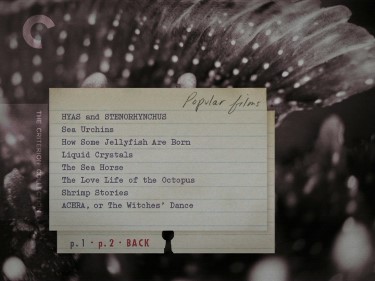 Popular films
HYAS and STENORHYNCHUS
Sea Urchins
How Some Jellyfish Are Born
Liquid Crystals
The Sea Horse
The Love Life of the Octopus
Shrimp Stories
ACERA, or The Witches' Dance
p.1 · p.2 · BACK
THE CRITERION COLLECTION